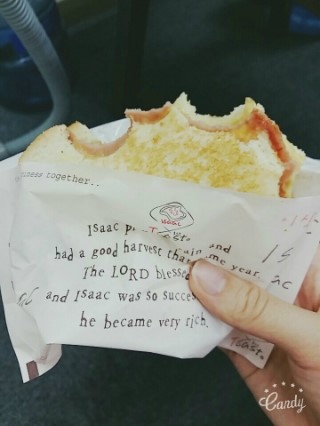 ness together..
Isaac
Isaac p
ain and
had a good harvest tha
me year.
The LORD blesse
and Isaac was so succes
he became very rich.
Candy